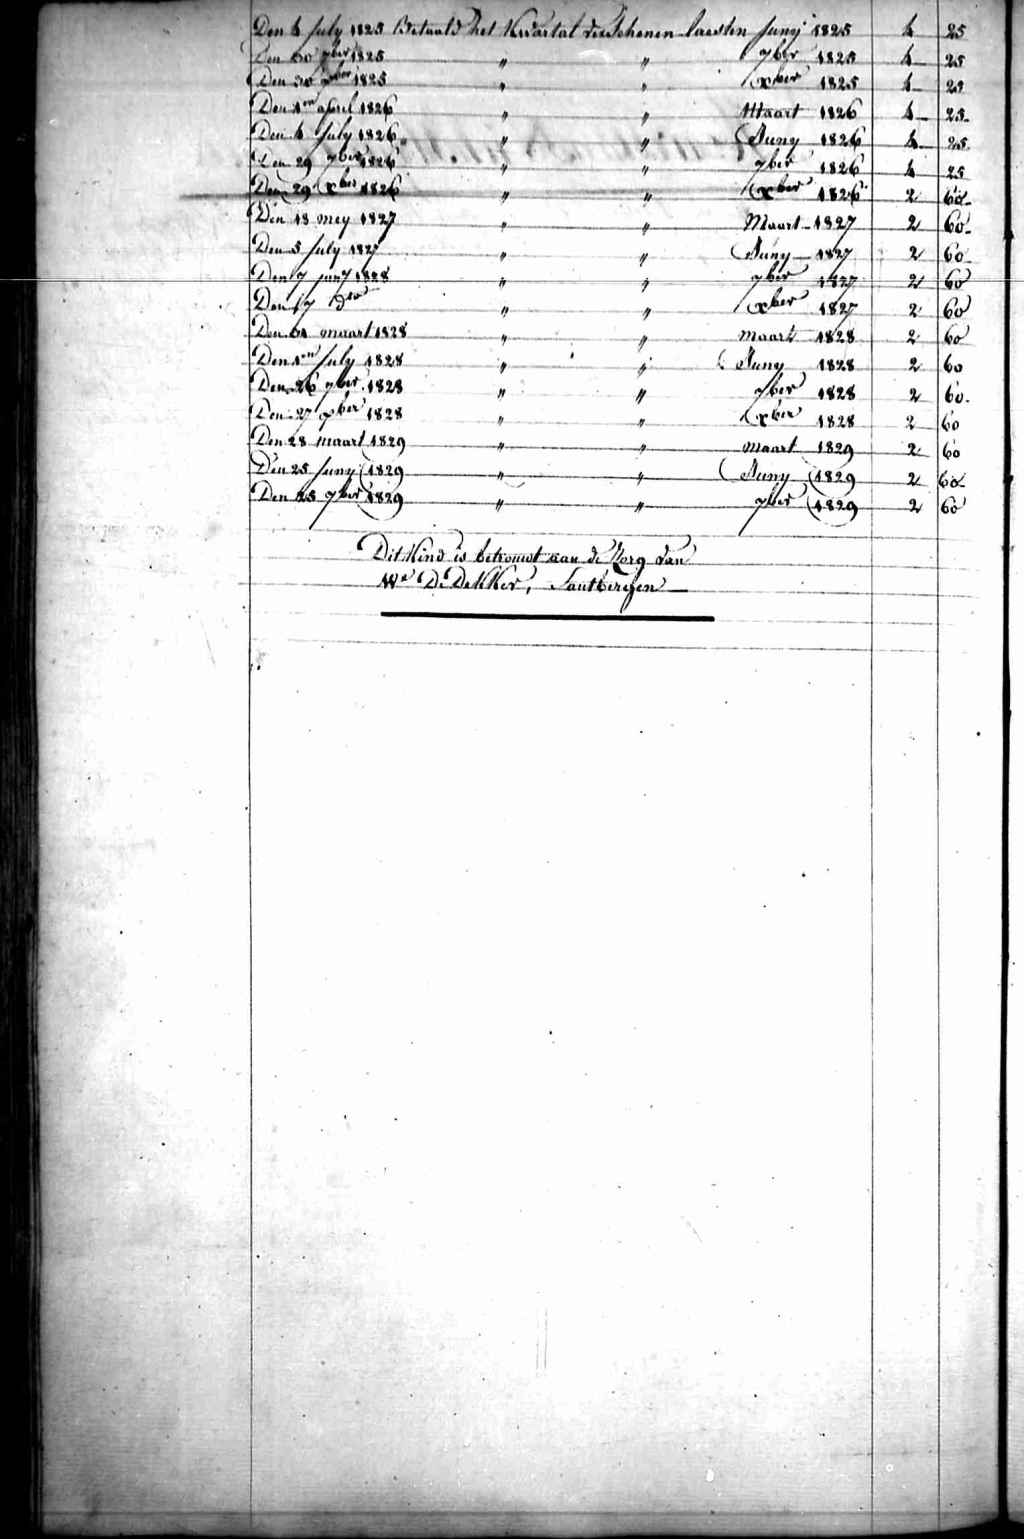 Den 4 July 1825 Betaald het Kwartal verschenen laesten Junij 1825 4 25
Den 30 7ber 1825 " " 7ber 1825 4 25
Den 30 xber 1825 " " xber 1825 4 25
Den 1en april 1826 " " Maart 1826 4 25
Den 4 July 1826 " " Juny 1826 4 25
Den 29 7ber 1826 " " 7ber 1826 4 25
Den 29 xber 1826 " " xber 1826 2 60
Den 13 mey 1827 " " Maart 1827 2 60
Den 5 July 1827 " " Juny 1827 2 60
Den 7 1828 " " 7ber 1827 2 60
Den 17 do " " xber 1827 2 60
Den 31 maart 1828 " " maart 1828 2 60
Den 1en July 1828 " " Juny 1828 2 60
Den 26 7ber 1828 " " 7ber 1828 2 60
Den 27 xber 1828 " " xber 1828 2 60
Den 28 maart 1829 " " maart 1829 2 60
Den 25 Juny 1829 " " Juny 1829 2 60
Den 25 7ber 1829 " " 7ber 1829 2 60
Dit Kind is betrouwt aan de Zorg van
We De Dekker, Santbergen